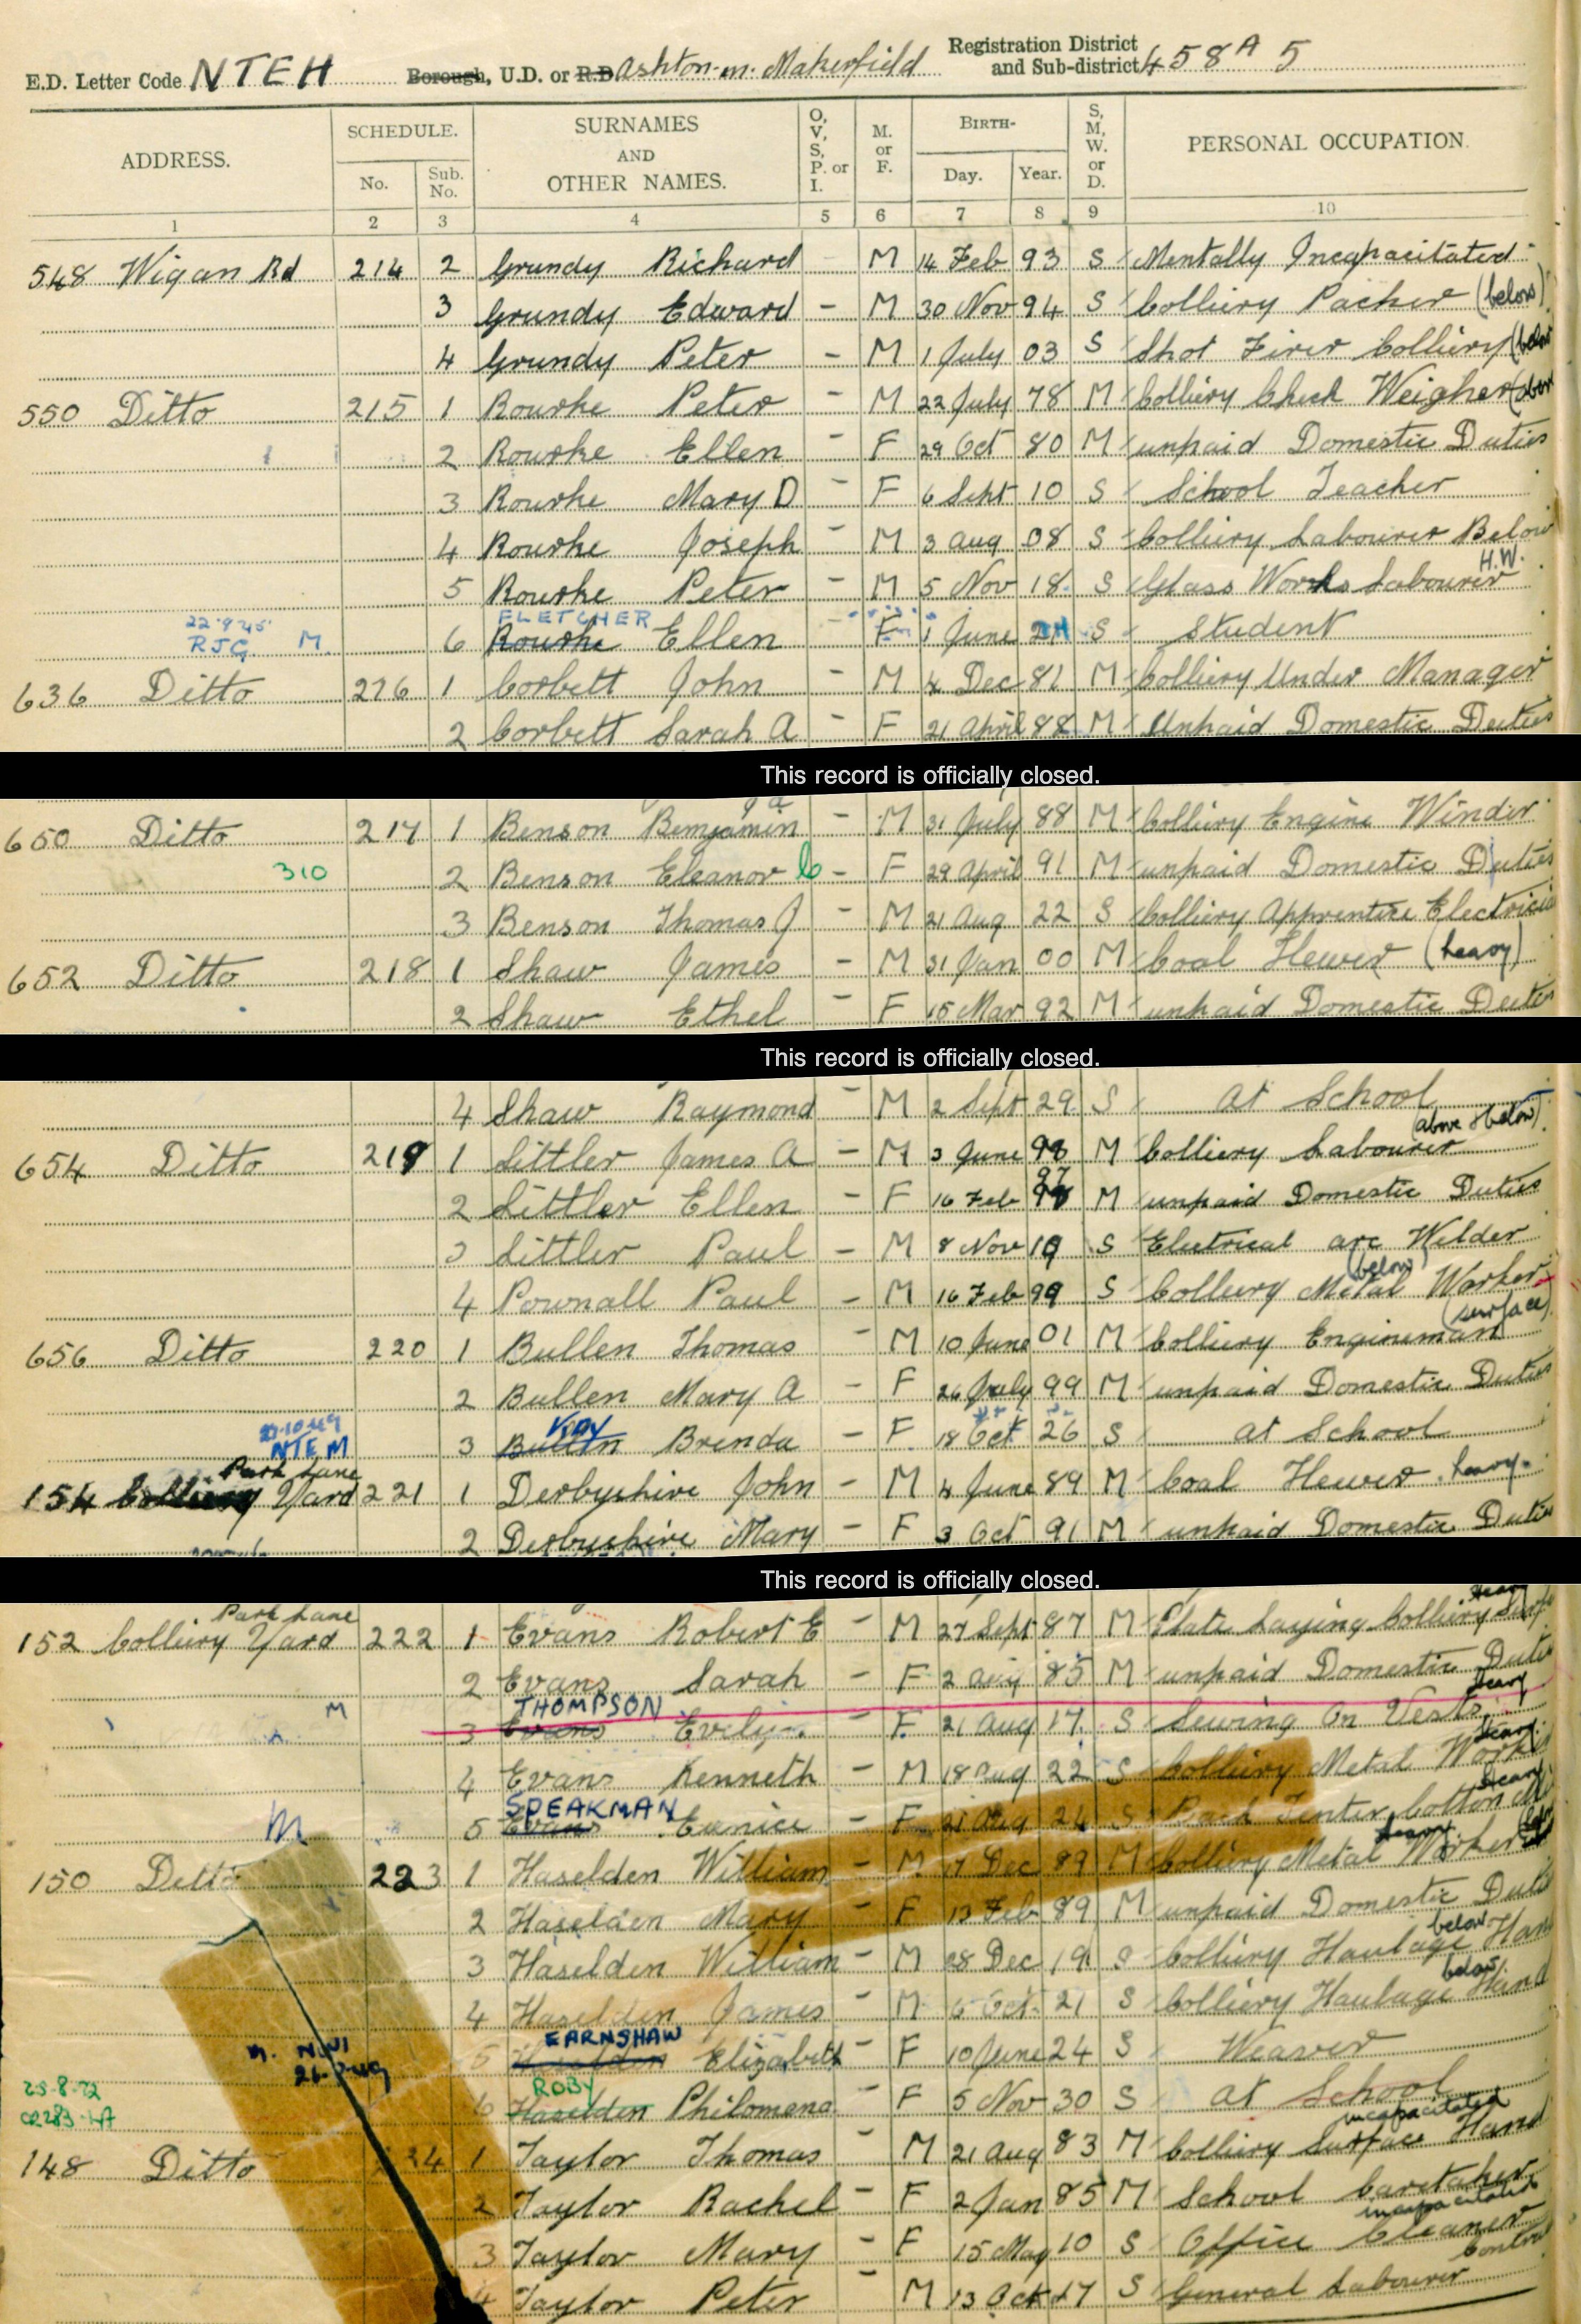 E.D. Letter Code NTEH Borough, U.D. or R.D. Ashton-in-Makerfield Registration District and Sub-district 458A 5
ADDRESS. SCHEDULE. No. Sub. No. SURNAMES AND OTHER NAMES. O, V, S, P. or I. M. or F. BIRTH- Day. Year. S, M, W. or D. PERSONAL OCCUPATION.
1 2 3 4 5 6 7 8 9 10
548 Wigan Rd 214 2 Grundy Richard - M 14 Feb 93 S Mentally Incapacitated
3 Grundy Edward - M 30 Nov 94 S Colliery Packer (below)
4 Grundy Peter - M 1 July 03 S Shot Firer Colliery (below
550 Ditto 215 1 Rourke Peter - M 22 July 78 M Colliery Check Weigher (above
2 Rourke Ellen - F 29 Oct 80 M unpaid Domestic Duties
3 Rourke Mary D - F 6 Sept 10 S School Teacher
4 Rourke Joseph - M 3 Aug 08 S Colliery Labourer Below
5 Rourke Peter - M 5 Nov 18 S Glass Works Labourer H.W.
22.9.45 FLETCHER
RJG M. 6 Rourke Ellen - F 1 June S Student
636 Ditto 216 1 Corbett John - M 4 Dec 81 M Colliery Under Manager
2 Corbett Sarah A - F 21 April 88 M Unpaid Domestic Duties
This record is officially closed.
650 Ditto 217 1 Benson Benjamin - M 31 July 88 M Colliery Engine Winder
310 2 Benson Eleanor - F 29 April 91 M unpaid Domestic Duties
3 Benson Thomas J - M 21 Aug 22 S Colliery Apprentice Electrician
652 Ditto 218 1 Shaw James - M 31 Jan 00 M Coal Hewer (heavy)
2 Shaw Ethel - F 15 Mar 92 M unpaid Domestic Duties
This record is officially closed.
4 Shaw Raymond - M 2 Sept 29 S At School
654 Ditto 219 1 Littler James A - M 3 June 98 M Colliery Labourer (above & below)
2 Littler Ellen - F 16 Feb 97 M unpaid Domestic Duties
3 Littler Paul - M 8 Nov 19 S Electrical arc Welder
4 Pownall Paul - M 16 Feb 99 S Colliery Metal Worker (below)
656 Ditto 220 1 Bullen Thomas - M 10 June 01 M Colliery Engineman (surface)
2 Bullen Mary A - F 26 July 99 M unpaid Domestic Duties
NTEM 3 Bullen Brenda - F 18 Oct 26 S at School
Park Lane
154 Colliery Yard 221 1 Derbyshire John - M 4 June 89 M Coal Hewer heavy
2 Derbyshire Mary - F 3 Oct 91 M unpaid Domestic Duties
This record is officially closed.
Park Lane
152 Colliery Yard 222 1 Evans Robert E - M 27 Sept 87 M Plate Laying Colliery heavy
2 Evans Sarah - F 2 Aug 85 M unpaid Domestic Duties
THOMPSON
M 3 Evans Evelyn F 21 Aug 17 S Sewing On Vests heavy
4 Evans Kenneth - M 18 Aug 22 S Colliery Metal Worker heavy
SPEAKMAN
M 5 Evans Eunice - F 21 Aug 24 S Tenter Cotton heavy
150 Ditto 223 1 Haselden William - M 17 Dec 89 M Colliery Metal Worker heavy
2 Haselden Mary - F 13 Feb 89 M unpaid Domestic Duties
3 Haselden William - M 28 Dec 19 S Colliery Haulage Hand below
4 Haselden James - M 6 Oct 21 S Colliery Haulage Hand below
EARNSHAW
5 Haselden Elizabeth - F 10 June 24 S Weaver
ROBY
6 Haselden Philomena - F 5 Nov 30 S at School
148 Ditto 224 1 Taylor Thomas - M 21 Aug 83 M Colliery Surface Hand incapacitated
2 Taylor Rachel - F 2 Jan 85 M School Caretaker
3 Taylor Mary - F 15 May 10 S Office Cleaner incapacitated
4 Taylor Peter - M 13 Oct 17 S General Labourer